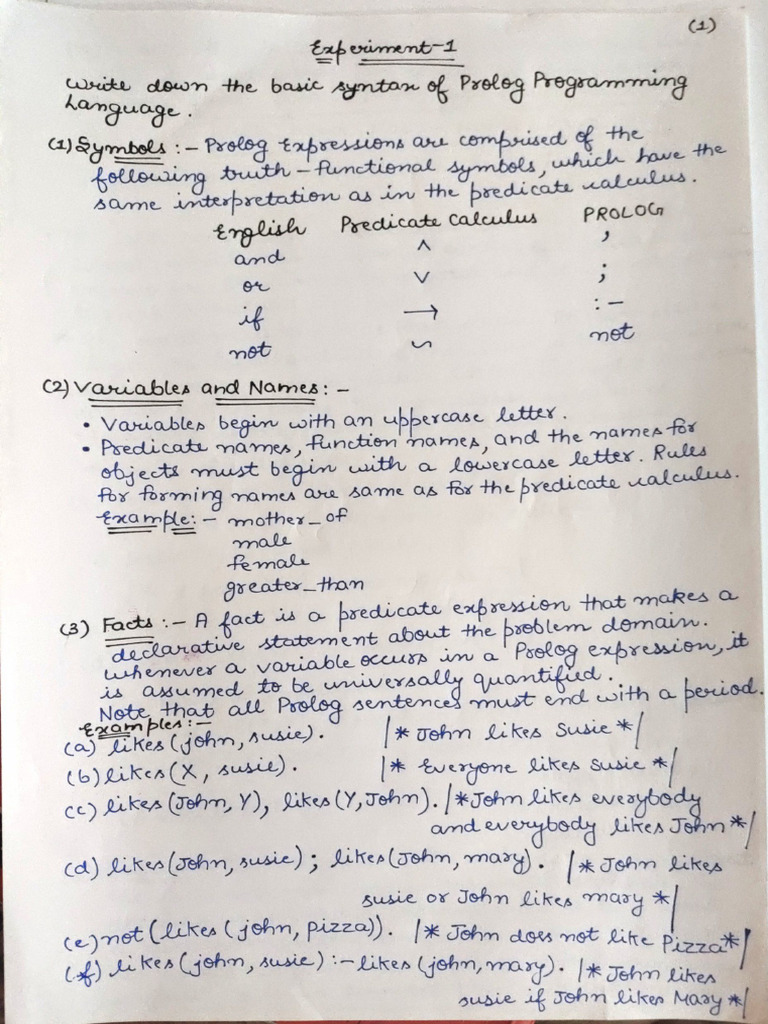 (1)
Experiment-1
Write down the basic syntax of Prolog Programming
Language.
(1) Symbols :- Prolog Expressions are comprised of the
following truth-functional symbols, which have the
same interpretation as in the predicate calculus.
English Predicate Calculus PROLOG
and ^ ,
or v ;
if → :-
not ~ not
(2) Variables and Names :-
• Variables begin with an uppercase letter.
• Predicate names, function names, and the names for
objects must begin with a lowercase letter. Rules
for forming names are same as for the predicate calculus.
Example:- mother_of
male
female
greater_than
(3) Facts :- A fact is a predicate expression that makes a
declarative statement about the problem domain.
whenever a variable occurs in a Prolog expression, it
is assumed to be universally quantified.
Note that all Prolog sentences must end with a period.
Examples:-
(a) likes(john, susie). |* John likes Susie *|
(b) likes(X, susie). |* Everyone likes Susie *|
(c) likes(John, Y), likes(Y, John). |* John likes everybody
and everybody likes John *|
(d) likes(John, susie) ; likes(John, mary). |* John likes
susie or John likes mary *|
(e) not (likes (john, pizza)). |* John does not like Pizza *|
(f) likes (john, susie) :- likes (john, mary). |* John likes
susie if John likes Mary *|